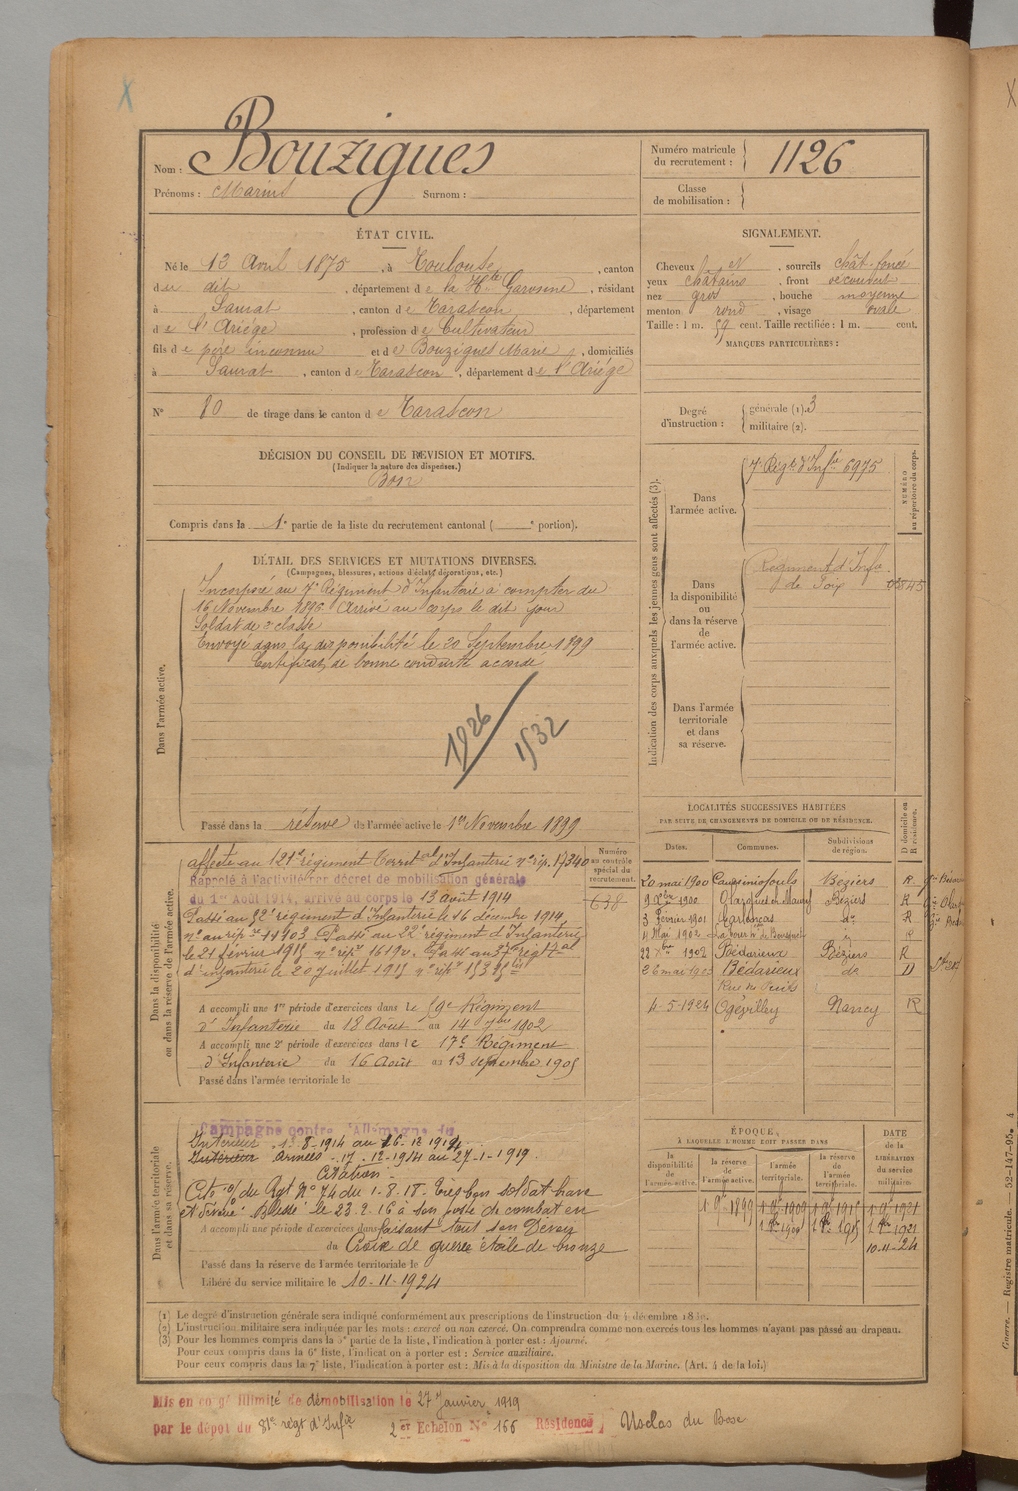 Nom : Bouzigues
Prénoms : Marius Surnom :
Numéro matricule du recrutement : 1126
Classe de mobilisation :
ÉTAT CIVIL.
Né le 13 Avril 1875, à Toulouse, canton
du dit, département de la Hte Garonne, résidant
à Saurat, canton de Tarascon, département
de l'Ariège, profession de Cultivateur
fils de père inconnu et de Bouzigues Marie, domiciliés
à Saurat, canton de Tarascon, département de l'Ariège
N° 80 de tirage dans le canton de Tarascon
SIGNALEMENT.
Cheveux et, sourcils chât. foncé
yeux châtains, front découvert
nez gros, bouche moyenne
menton rond, visage ovale
Taille : 1 m. 59 cent. Taille rectifiée : 1 m. cent.
MARQUES PARTICULIÈRES :
Degré d'instruction : générale (1). 3
militaire (2).
DÉCISION DU CONSEIL DE REVISION ET MOTIFS.
(Indiquer la nature des dispenses.)
Bon
Compris dans la 1e partie de la liste du recrutement cantonal ( e portion).
Indication des corps auxquels les jeunes gens sont affectés (3).
NUMÉRO au répertoire du corps.
Dans l'armée active.
7e Régt d'Infie 6975
Dans la disponibilité ou dans la réserve de l'armée active.
Régiment d'Infie
de Foix
Dans l'armée territoriale et dans sa réserve.
DÉTAIL DES SERVICES ET MUTATIONS DIVERSES.
(Campagnes, blessures, actions d'éclat, décorations, etc.)
Dans l'armée active.
Incorporé au 7e Régiment d'Infanterie à compter du
16 Novembre 1896 Arrivé au corps le dit jour
Soldat de 2e classe
Envoyé dans la disponibilité le 20 Septembre 1899
Certificat de bonne conduite accordé
1926
1932
Passé dans la réserve de l'armée active le 1er Novembre 1899
Dans la disponibilité ou dans la réserve de l'armée active.
Numéro au contrôle spécial du recrutement.
638
affecté au 121e régiment Territorial d'Infanterie n° rép. 17340
Rappelé à l'activité par décret de mobilisation générale
du 1er Août 1914, arrivé au corps le 13 août 1914
Passé au 82e régiment d'Infanterie le 16 décembre 1914,
n° au rép. 11403. Passé au 22e régiment d'Infanterie
le 21 février 1915 n° rép. 16190. Passé au 37e régt tal
d'infanterie le 20 juillet 1915
A accompli une 1re période d'exercices dans le Régiment
d'Infanterie du 18 Août au 14 7bre 1902
A accompli une 2e période d'exercices dans le 17e Régiment
d'Infanterie du 16 Août au 13 septembre 1905
Passé dans l'armée territoriale le
LOCALITÉS SUCCESSIVES HABITÉES
PAR SUITE DE CHANGEMENTS DE DOMICILE OU DE RÉSIDENCE.
Dates. Communes. Subdivisions de région. D domicile ou R résidence.
20 mai 1900 Beziers R
9 Xbre 1900 Olargues Béziers R
3 Février 1901 do R
11 Mai 1902 La Tour R
22 Xbre 1902 Bédarieux Béziers R
26 mai 1903 Bédarieux do D
Rue du Puits
4-5-1924 Ogéviller Nancy R
Dans l'armée territoriale et dans sa réserve.
Campagne contre l'Allemagne du
Intérieur 1-8-1914 au 16-12-1914
Intérieur Armées - 17-12-1914 au 27-1-1919.
Citation :
Cité o/ du Rgt N° 74 du 1-8-18. Très bon soldat brave
et dévoué. Blessé le 23-2-16 à son poste de combat en
A accompli une période d'exercices dans faisant tout son Devoir
du Croix de guerre étoile de bronze
Passé dans la réserve de l'armée territoriale le
Libéré du service militaire le 10-11-1924
ÉPOQUE
À LAQUELLE L'HOMME DOIT PASSER DANS
DATE de la LIBÉRATION du service militaire.
la disponibilité de l'armée active. la réserve de l'armée active. l'armée territoriale. la réserve de l'armée territoriale.
1 9e 1899 1 9e 1909 1 9e 1915 1 9e 1921
10-11-24
(1) Le degré d'instruction générale sera indiqué conformément aux prescriptions de l'instruction du 4 décembre 1889.
(2) L'instruction militaire sera indiquée par les mots : exercé ou non exercé. On comprendra comme non exercés tous les hommes n'ayant pas passé au drapeau.
(3) Pour les hommes compris dans la 5e partie de la liste, l'indication à porter est : Ajourné.
Pour ceux compris dans la 6e liste, l'indication à porter est : Service auxiliaire.
Pour ceux compris dans la 7e liste, l'indication à porter est : Mis à la disposition du Ministre de la Marine. (Art. 4 de la loi.)
Mis en congé illimité de démobilisation le 27 Janvier 1919
par le dépôt du 81e régt d'Infie 2er Echelon N° 166 Résidence Usclas du Bosc
Guerre. — Registre matricule. — 52-147-95. 4